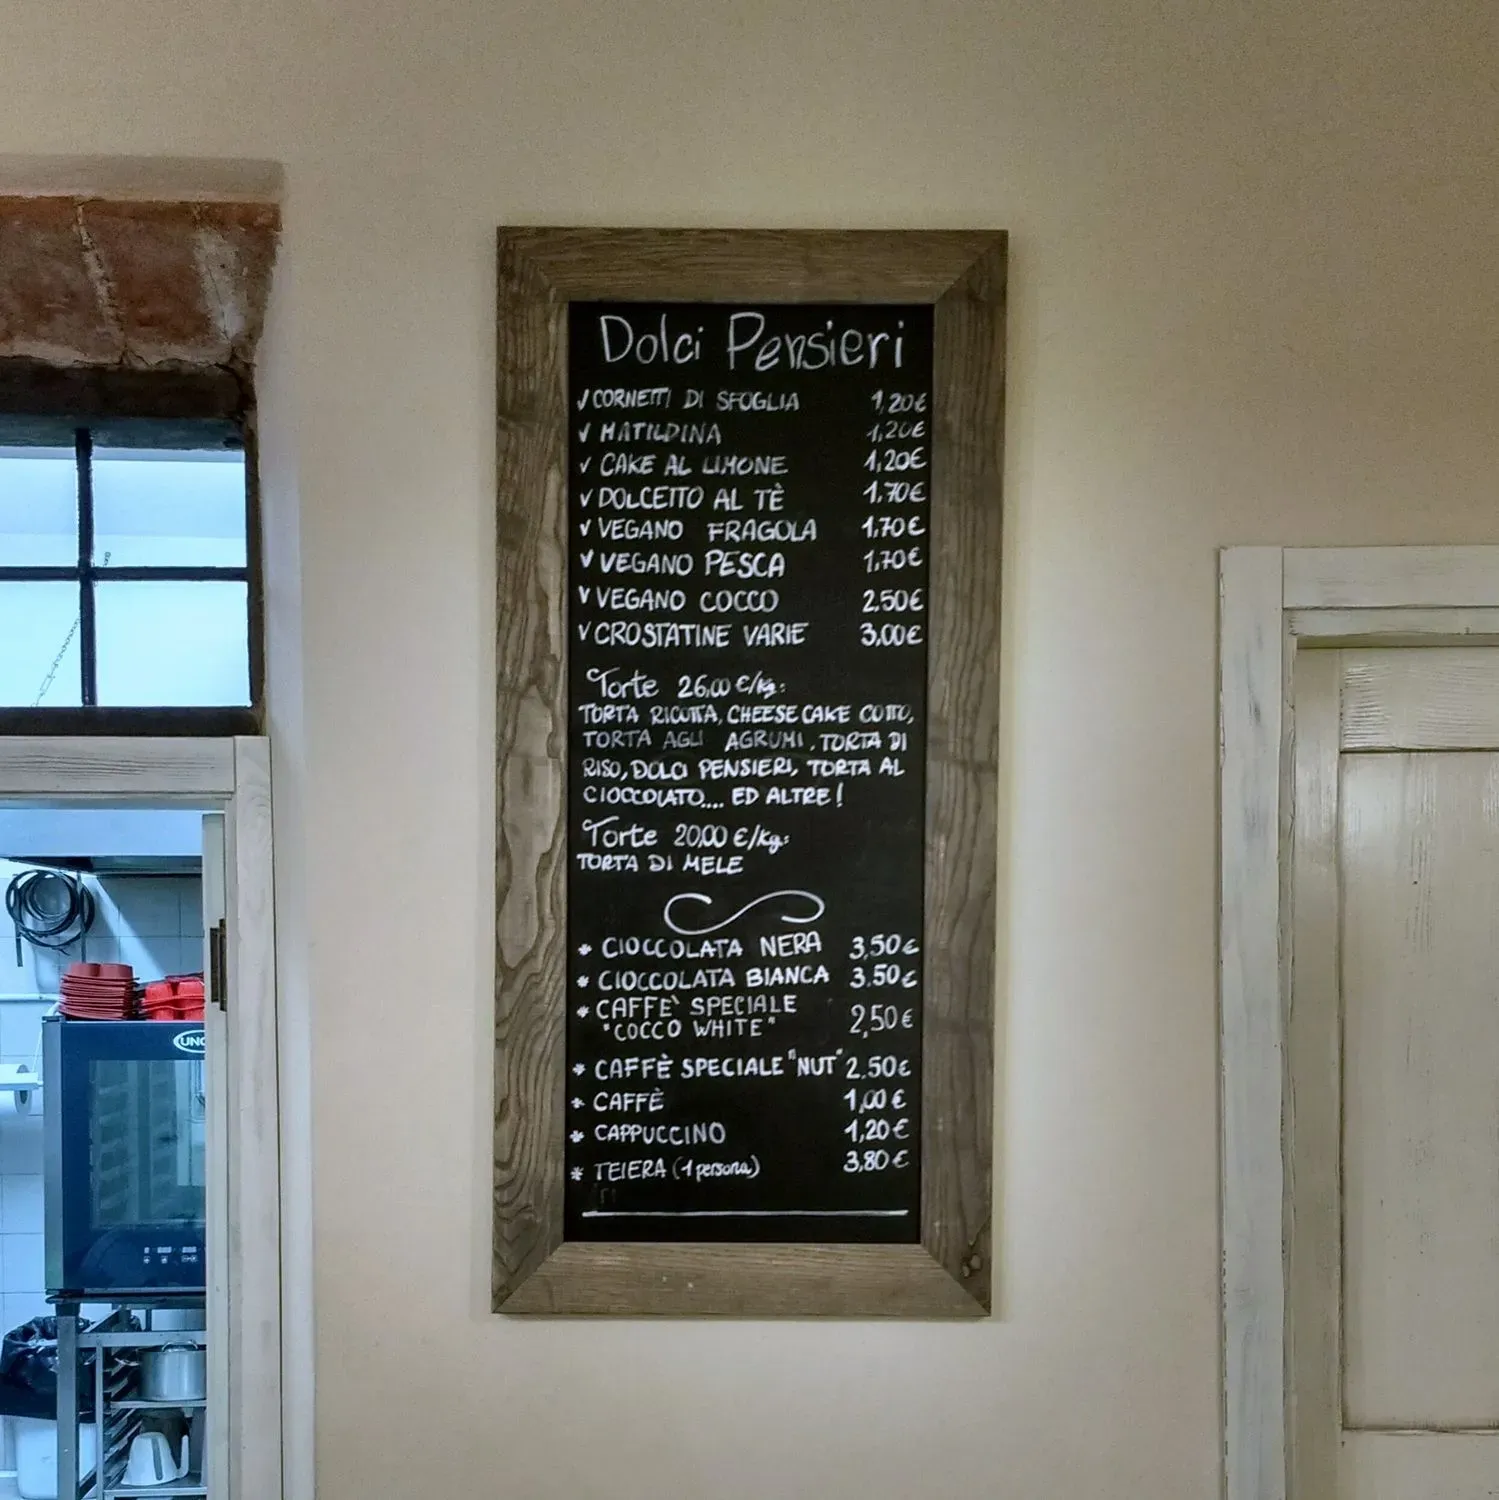 Dolci Pensieri
✓ CORNETTI DI SFOGLIA 1,20€
✓ MATILDINA 1,20€
✓ CAKE AL LIMONE 1,20€
✓ DOLCETTO AL TÈ 1,70€
✓ VEGANO FRAGOLA 1,70€
✓ VEGANO PESCA 1,70€
✓ VEGANO COCCO 2,50€
✓ CROSTATINE VARIE 3,00€
Torte 26,00 €/kg:
TORTA RICOTTA, CHEESECAKE COTTO,
TORTA AGLI AGRUMI, TORTA DI
RISO, DOLCI PENSIERI, TORTA AL
CIOCCOLATO.... ED ALTRE!
Torte 20,00 €/kg:
TORTA DI MELE
* CIOCCOLATA NERA 3,50€
* CIOCCOLATA BIANCA 3.50€
* CAFFE' SPECIALE
"COCCO WHITE" 2,50€
* CAFFÈ SPECIALE "NUT" 2.50€
* CAFFÈ 1,00€
* CAPPUCCINO 1,20€
* TEIERA (1 persona) 3,80€